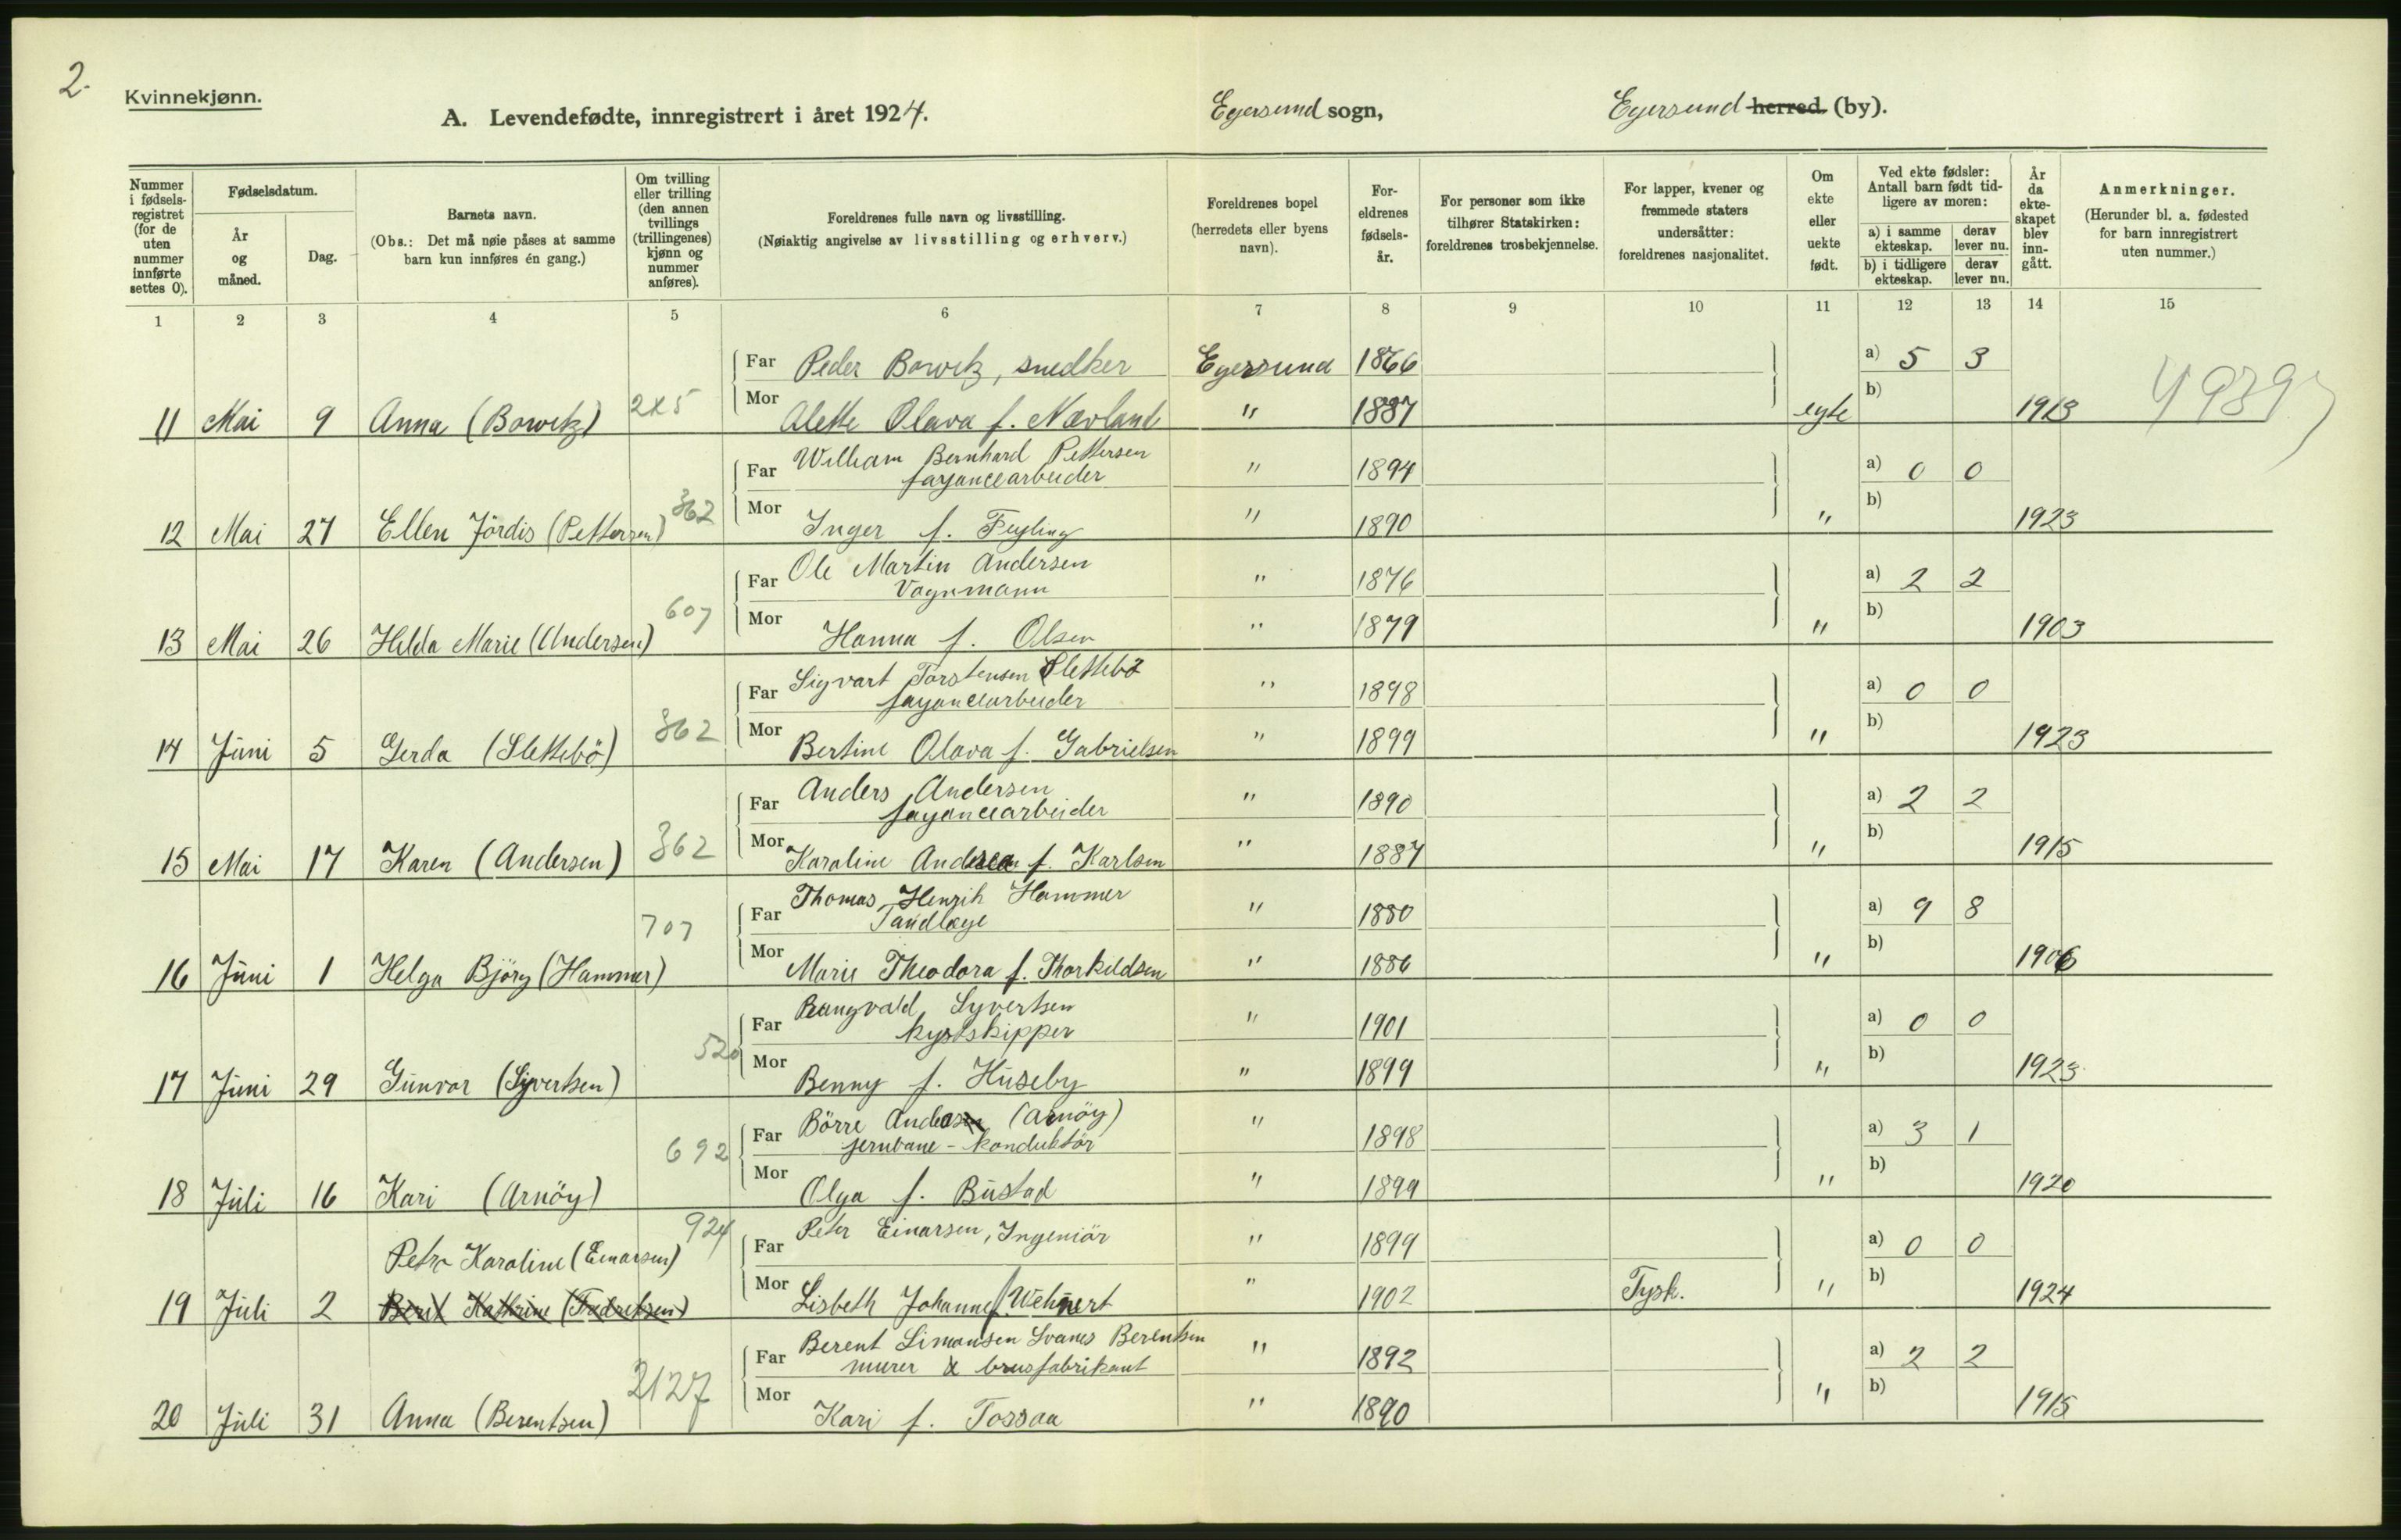 2.
Kvinnekjønn.
A. Levendefødte, innregistrert i året 1924.
Egersund sogn,
Egersund herred (by).
Nummer i fødsels-registret (for de uten nummer innførte settes 0).
Fødselsdatum.
År og måned.
Dag.
Barnets navn.
(Obs.: Det må nøie påses at samme barn kun innføres én gang.)
Om tvilling eller trilling (den annen tvillings (trillingenes) kjønn og nummer anføres).
Foreldrenes fulle navn og livsstilling.
(Nøiaktig angivelse av livsstilling og erhverv.)
Foreldrenes bopel (herredets eller byens navn).
For-eldrenes fødsels-år.
For personer som ikke tilhører Statskirken: foreldrenes trosbekjennelse.
For lapper, kvener og fremmede staters undersåtter: foreldrenes nasjonalitet.
Om ekte eller uekte født.
Ved ekte fødsler: Antall barn født tid-ligere av moren:
a) i samme ekteskap.
derav lever nu.
b) i tidligere ekteskap.
derav lever nu.
År da ekte-skapet blev inn-gått.
Anmerkninger.
(Herunder bl. a. fødested for barn innregistrert uten nummer.)
1 2 3 4 5 6 7 8 9 10 11 12 13 14 15
Far Peder Bowitz, snedker Egersund 1866 a) 5 3
11 Mai 9 Anna (Bowitz) Mor Alette Olava f. Nævland " 1887 egte b) 1913
Far William Bernhard Pettersen " 1894 a) 0 0
fayancearbeider
12 Mai 27 Ellen Jördis (Pettersen) 362 Mor Inger f. Fugling " 1890 " b) 1923
Far Ole Martin Andersen " 1876 a) 2 2
Vognmann
13 Mai 26 Helda Marie (Andersen) 607 Mor Hanna f. Olsen " 1879 " b) 1903
Far Sigvart Torstensen Slettebö " 1898 a) 0 0
fayancearbeider
14 Juni 5 Gerda (Slettebö) 362 Mor Bertine Olava f. Gabrielsen " 1899 " b) 1923
Far Anders Andersen " 1890 a) 2 2
fayancearbeider
15 Mai 17 Karen (Andersen) 362 Mor Karoline Andrea f. Karlsen " 1887 " b) 1915
Far Thomas Henrik Hammer " 1880 a) 9 8
Tandlæge
16 Juni 1 Helga Björg (Hammer) 707 Mor Marie Theodora f. Thorkildsen " 1886 " b) 1906
Far Rangvald Syvertsen " 1901 a) 0 0
kystskipper
17 Juni 29 Gunvor (Syvertsen) 520 Mor Benny f. Huseby " 1899 " b) 1923
Far Börre Andeas (Arnöy) " 1898 a) 3 1
jernbane-konduktör
18 Juli 16 Kari (Arnöy) 692 Mor Olga f. Bustad " 1899 " b) 1920
Petra Karoline (Einarsen) 924 Far Peter Einarsen, Ingeniör " 1899 a) 0 0
19 Juli 2 Berit Kathrine (Fredriksen) Mor Lisbeth Johanne f. Wehnert " 1902 Tysk. " b) 1924
Far Berent Simonsen Svanes Berentsen " 1892 a) 2 2
murer & brusfabrikant
20 Juli 31 Anna (Berentsen) 2127 Mor Kari f. Tossaa " 1890 " b) 1915